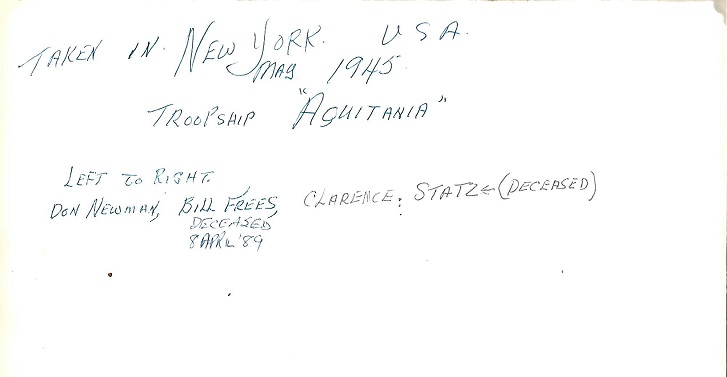 TAKEN IN. NEW YORK. U S A.
MAY 1945.
TROOPSHIP "AQUITANIA"
LEFT TO RIGHT.
DON NEWMAN, BILL FREES, CLARENCE. STATZ ← (DECEASED)
DECEASED
8 APRIL '89